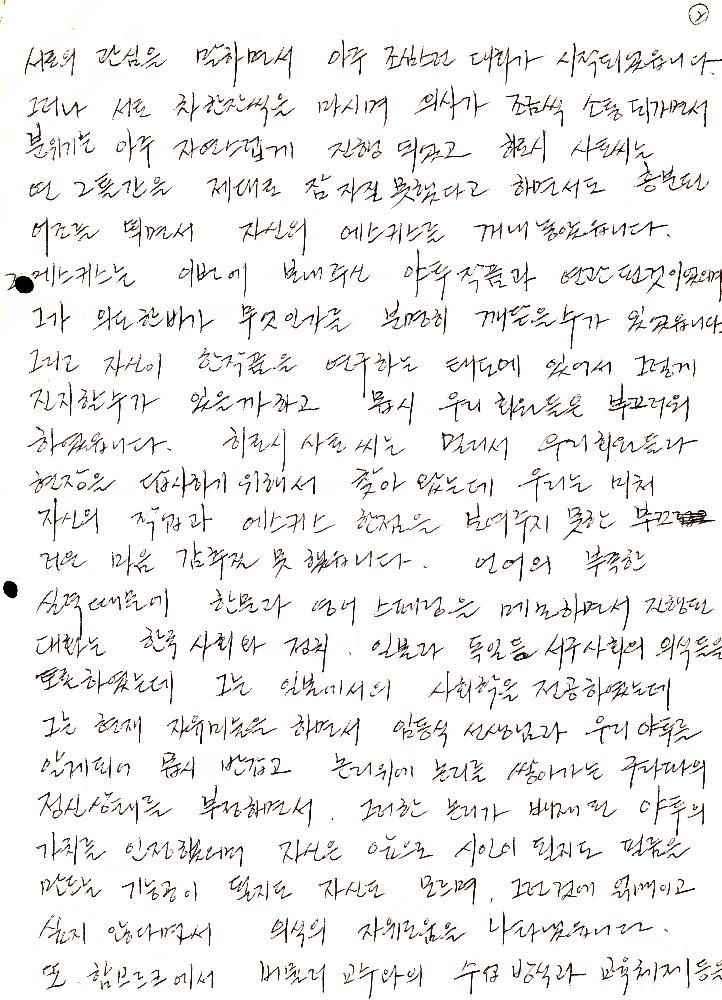 ②
서로의 관심을 말하면서 아주 조심스런 대화가 시작되었읍니다.
그러나 서로 차 한잔씩을 마시며 의사가 조금씩 소통되가면서
분위기는 아주 자연스럽게 진행되었고 히로시 사토씨는
몇 그틀간을 제대로 잠자질 못했다고 하면서도 흥분된
어조를 띄면서 자신의 에스키스를 꺼내놓았읍니다.
에스키스는 이번에 보내주신 야투작품과 연관된것이었으며
그가 의도한바가 무엇인가를 분명히 깨달을수가 있었읍니다
그리고 자신이 한작품을 연구하는 태도에 있어서 그렇게
진지할수가 있을까하고 몹시 우리 회원들은 부끄러워
하였읍니다. 히로시 사토씨는 멀리서 우리회원들과
현장을 답사하기 위해서 찾아 왔는데 우리는 미처
자신의 작업과 에스키스 한점을 보여주지 못한 부끄
러운 마음 감추질 못했읍니다. 언어의 부족한
실력때문에 한문과 영어 스페링을 메모하면서 진행된
대화는 한국 사회와 정치, 일본과 독일등 서구사회의 의식들을
토론하였는데 그는 일본에서의 사회학을 전공하였는데
그는 현재 자유미술을 하면서 임동식 선생님과 우리야투를
알게되어 몹시 반갑고 논리위에 논리를 쌓아가는 구라파의
정신상태를 부정하면서, 그러한 논리가 배제된 야투의
가치를 인정했으며 자신은 앞으로 시인이 될지도 필름을
만드는 기능공이 될지도 자신도 모르며, 그런것에 얽매이고
싶지 않다면서 의식의 자유로움을 나타냈읍니다.
또 함브르크에서 교수와의 수업방식과 교육체제등을